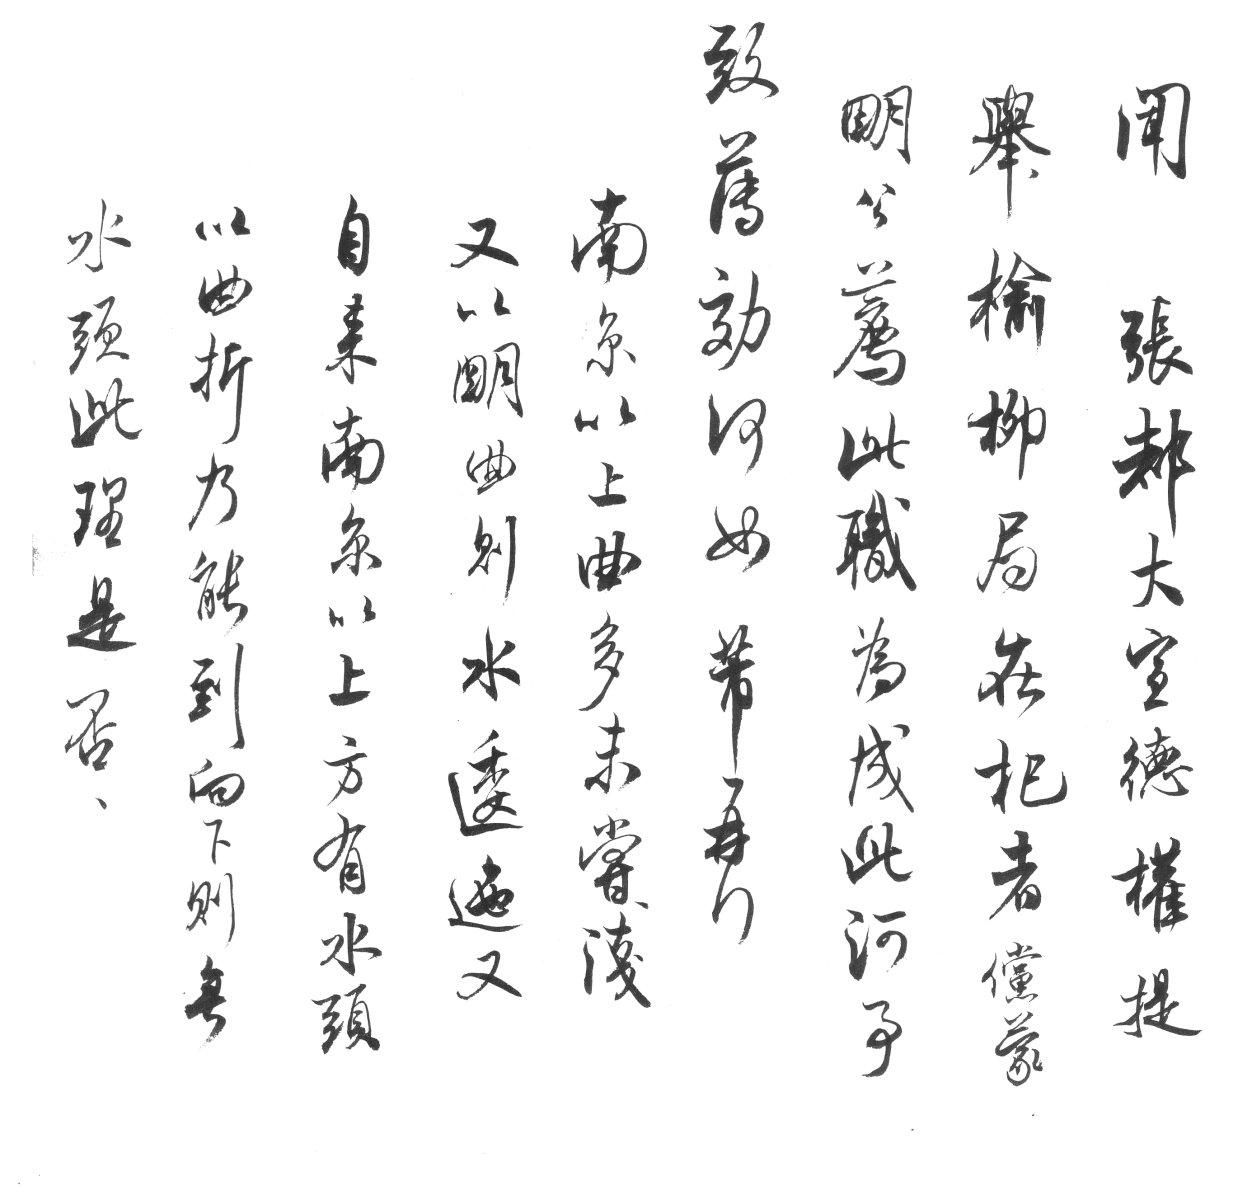 聞　張都大宣德權提
舉榆柳局在杞者儻蒙
明公薦此職為成此河事
致薄効何如　芾再行
南京以上曲多未嘗淺
又以明曲則水逶迤又
自來南京以上方有水頭
以曲折乃能到向下則無
水頭此理是否